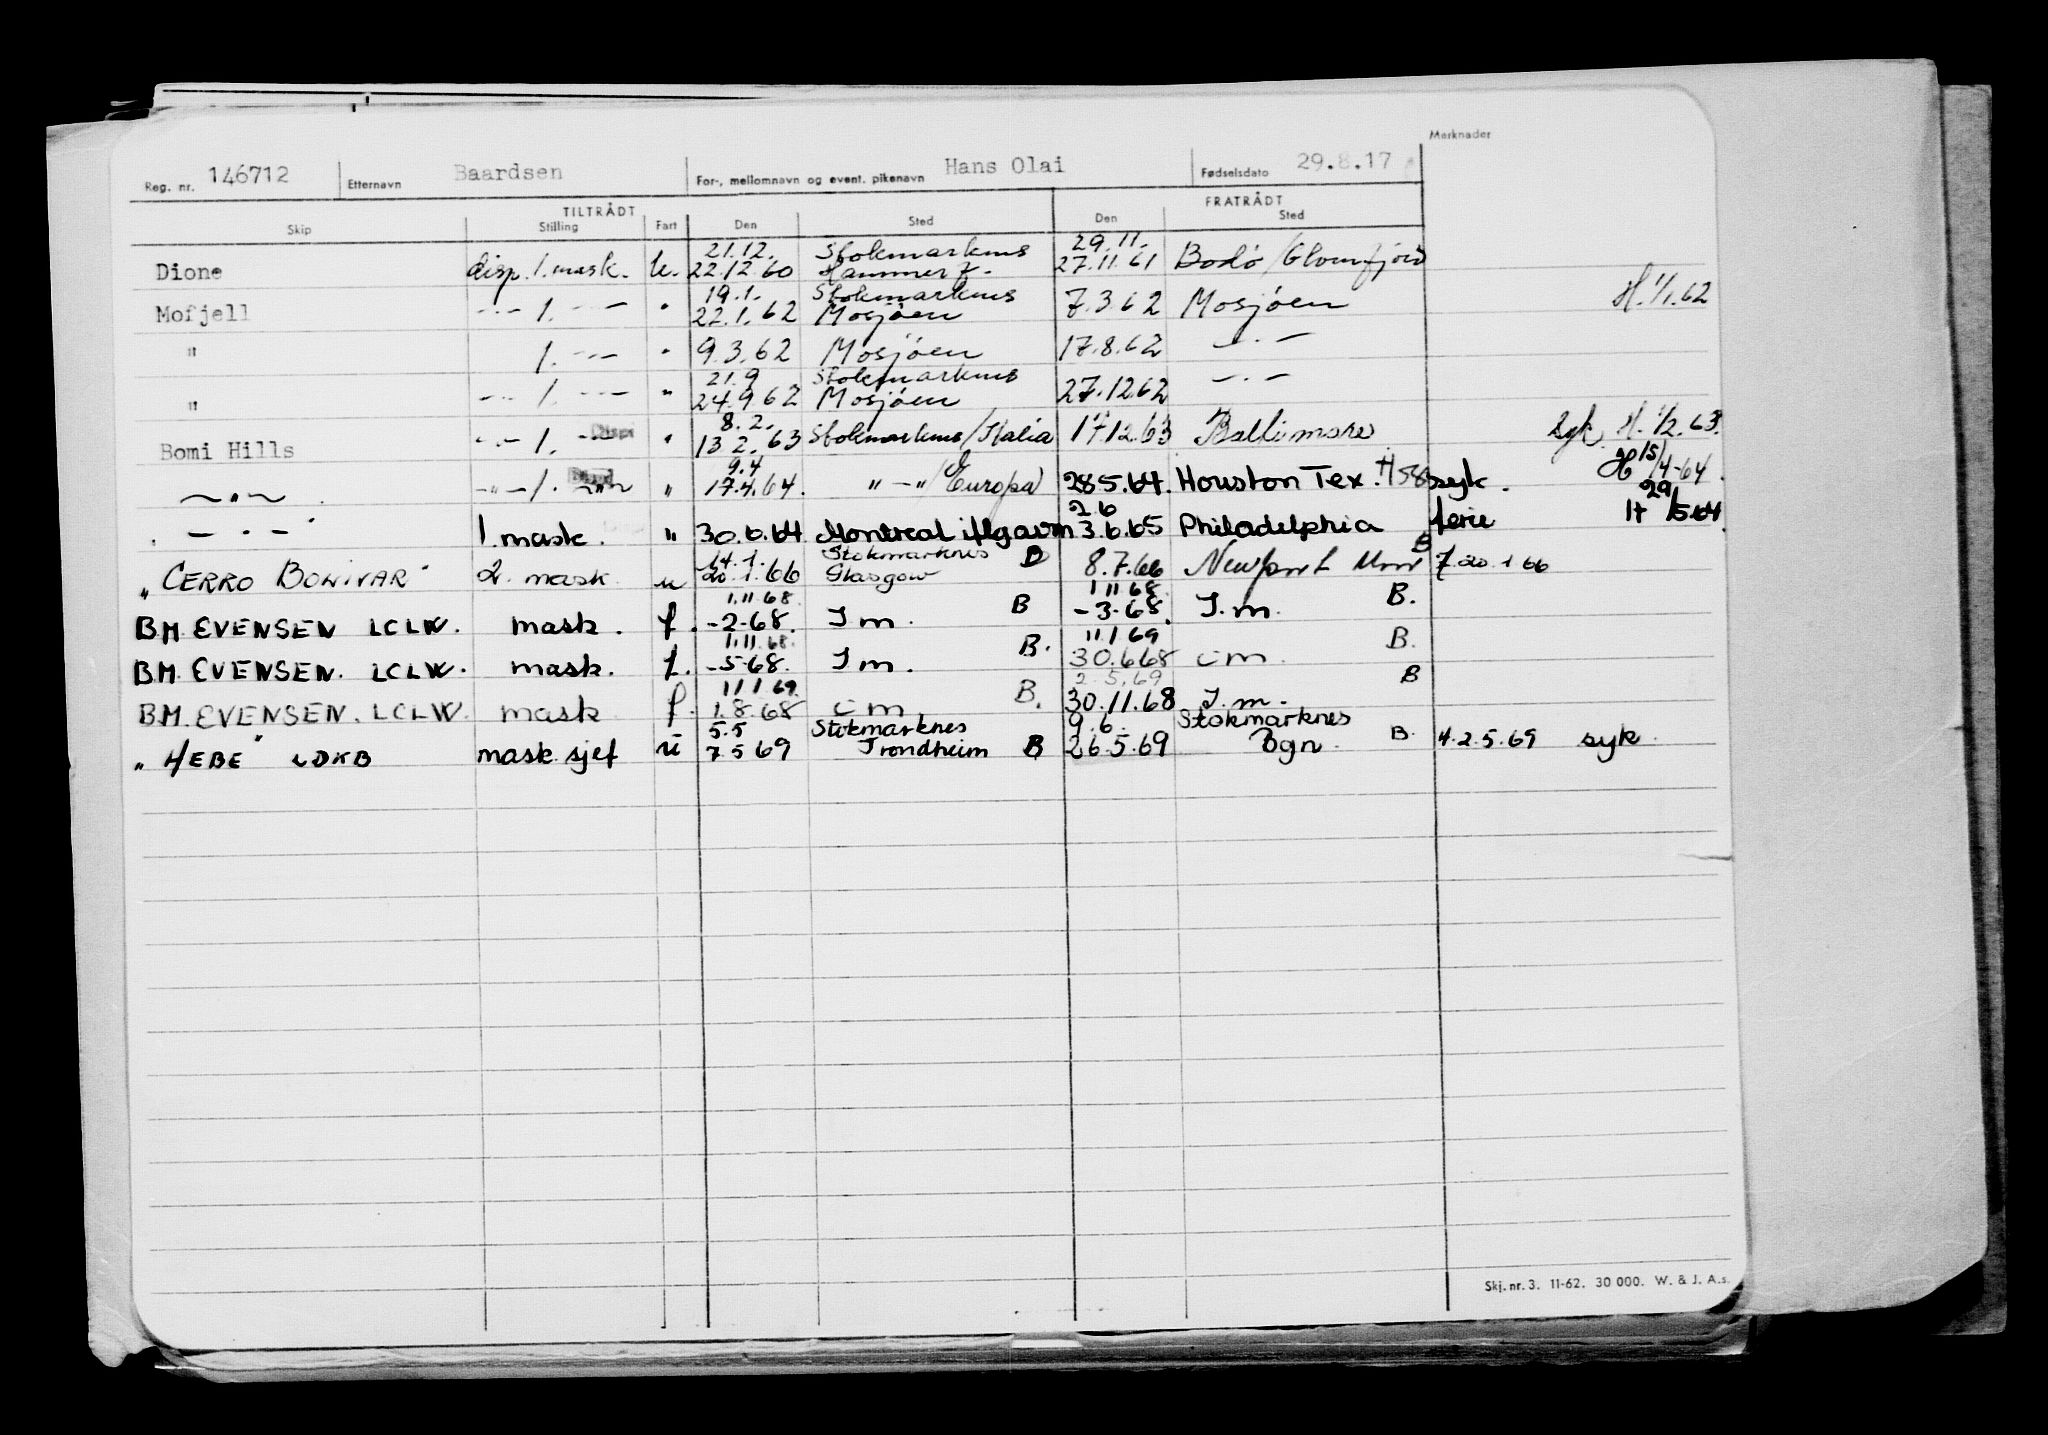 Merknader
Reg. nr. 146712 Etternavn Baardsen For-, mellomnavn og event. pikenavn Hans Olai Fødselsdato 29.8.17
TILTRÅDT FRATRÅDT
Skip Stilling Fart Den Sted Den Sted
21.12. Stokmarknes 29.11.
Dione disp. 1. mask. u. 22.12.60 Hammerf. 27.11.61 Bodø/Glomfjord
19.1. Stokmarknes
Mofjell -"- 1. -"- " 22.1.62 Mosjøen 7.3.62 Mosjøen H. 1/1.62
" 1. -"- " 9.3.62 Mosjøen 17.8.62 -"-
21.9 Stokmarknes
" -"- 1. -"- " 24.9.62 Mosjøen 27.12.62 -"-
8.2.
Bomi Hills -"- 1. -"- " 13.2.63 Stokmarknes/Italia 17.12.63 Baltimore syk. H. 1/2.63.
9.4
-"- -"- 1. -"- " 17.4.64. -"-/Europa 28.5.64. Houston Tex. syk. H 15/4-64.
2.6
-"- 1. mask. " 30.6.64 Montreal 3.6.65 Philadelphia ferie H 29/5.64.
14.1. Stokmarknes B B
"CERRO BOLIVAR" 2. mask. u 20.1.66 Glasgow 8.7.66 Newport 7.20.1.66
1.11.68. 1.11.68
B.M. EVENSEN LCLW. mask. f. -2-68. I m. B -3-68. I.m. B.
1.11.68. 11.1.69
B.M. EVENSEN. LCLW. mask. f. -5-68. I m. B. 30.6.68 I m. B.
11.1.69. 2.5.69
B.M. EVENSEN. LCLW. mask f. 1.8.68 I m B. 30.11.68 I.m. B
5.5 Stokmarknes 9.6. Stokmarknes
"HEBE" LDKB mask.sjef u 7.5.69 Trondheim B 26.5.69 Bgn. B. 4.2.5.69 syk.
Skj. nr. 3. 11-62. 30 000. W. & J. A.s.